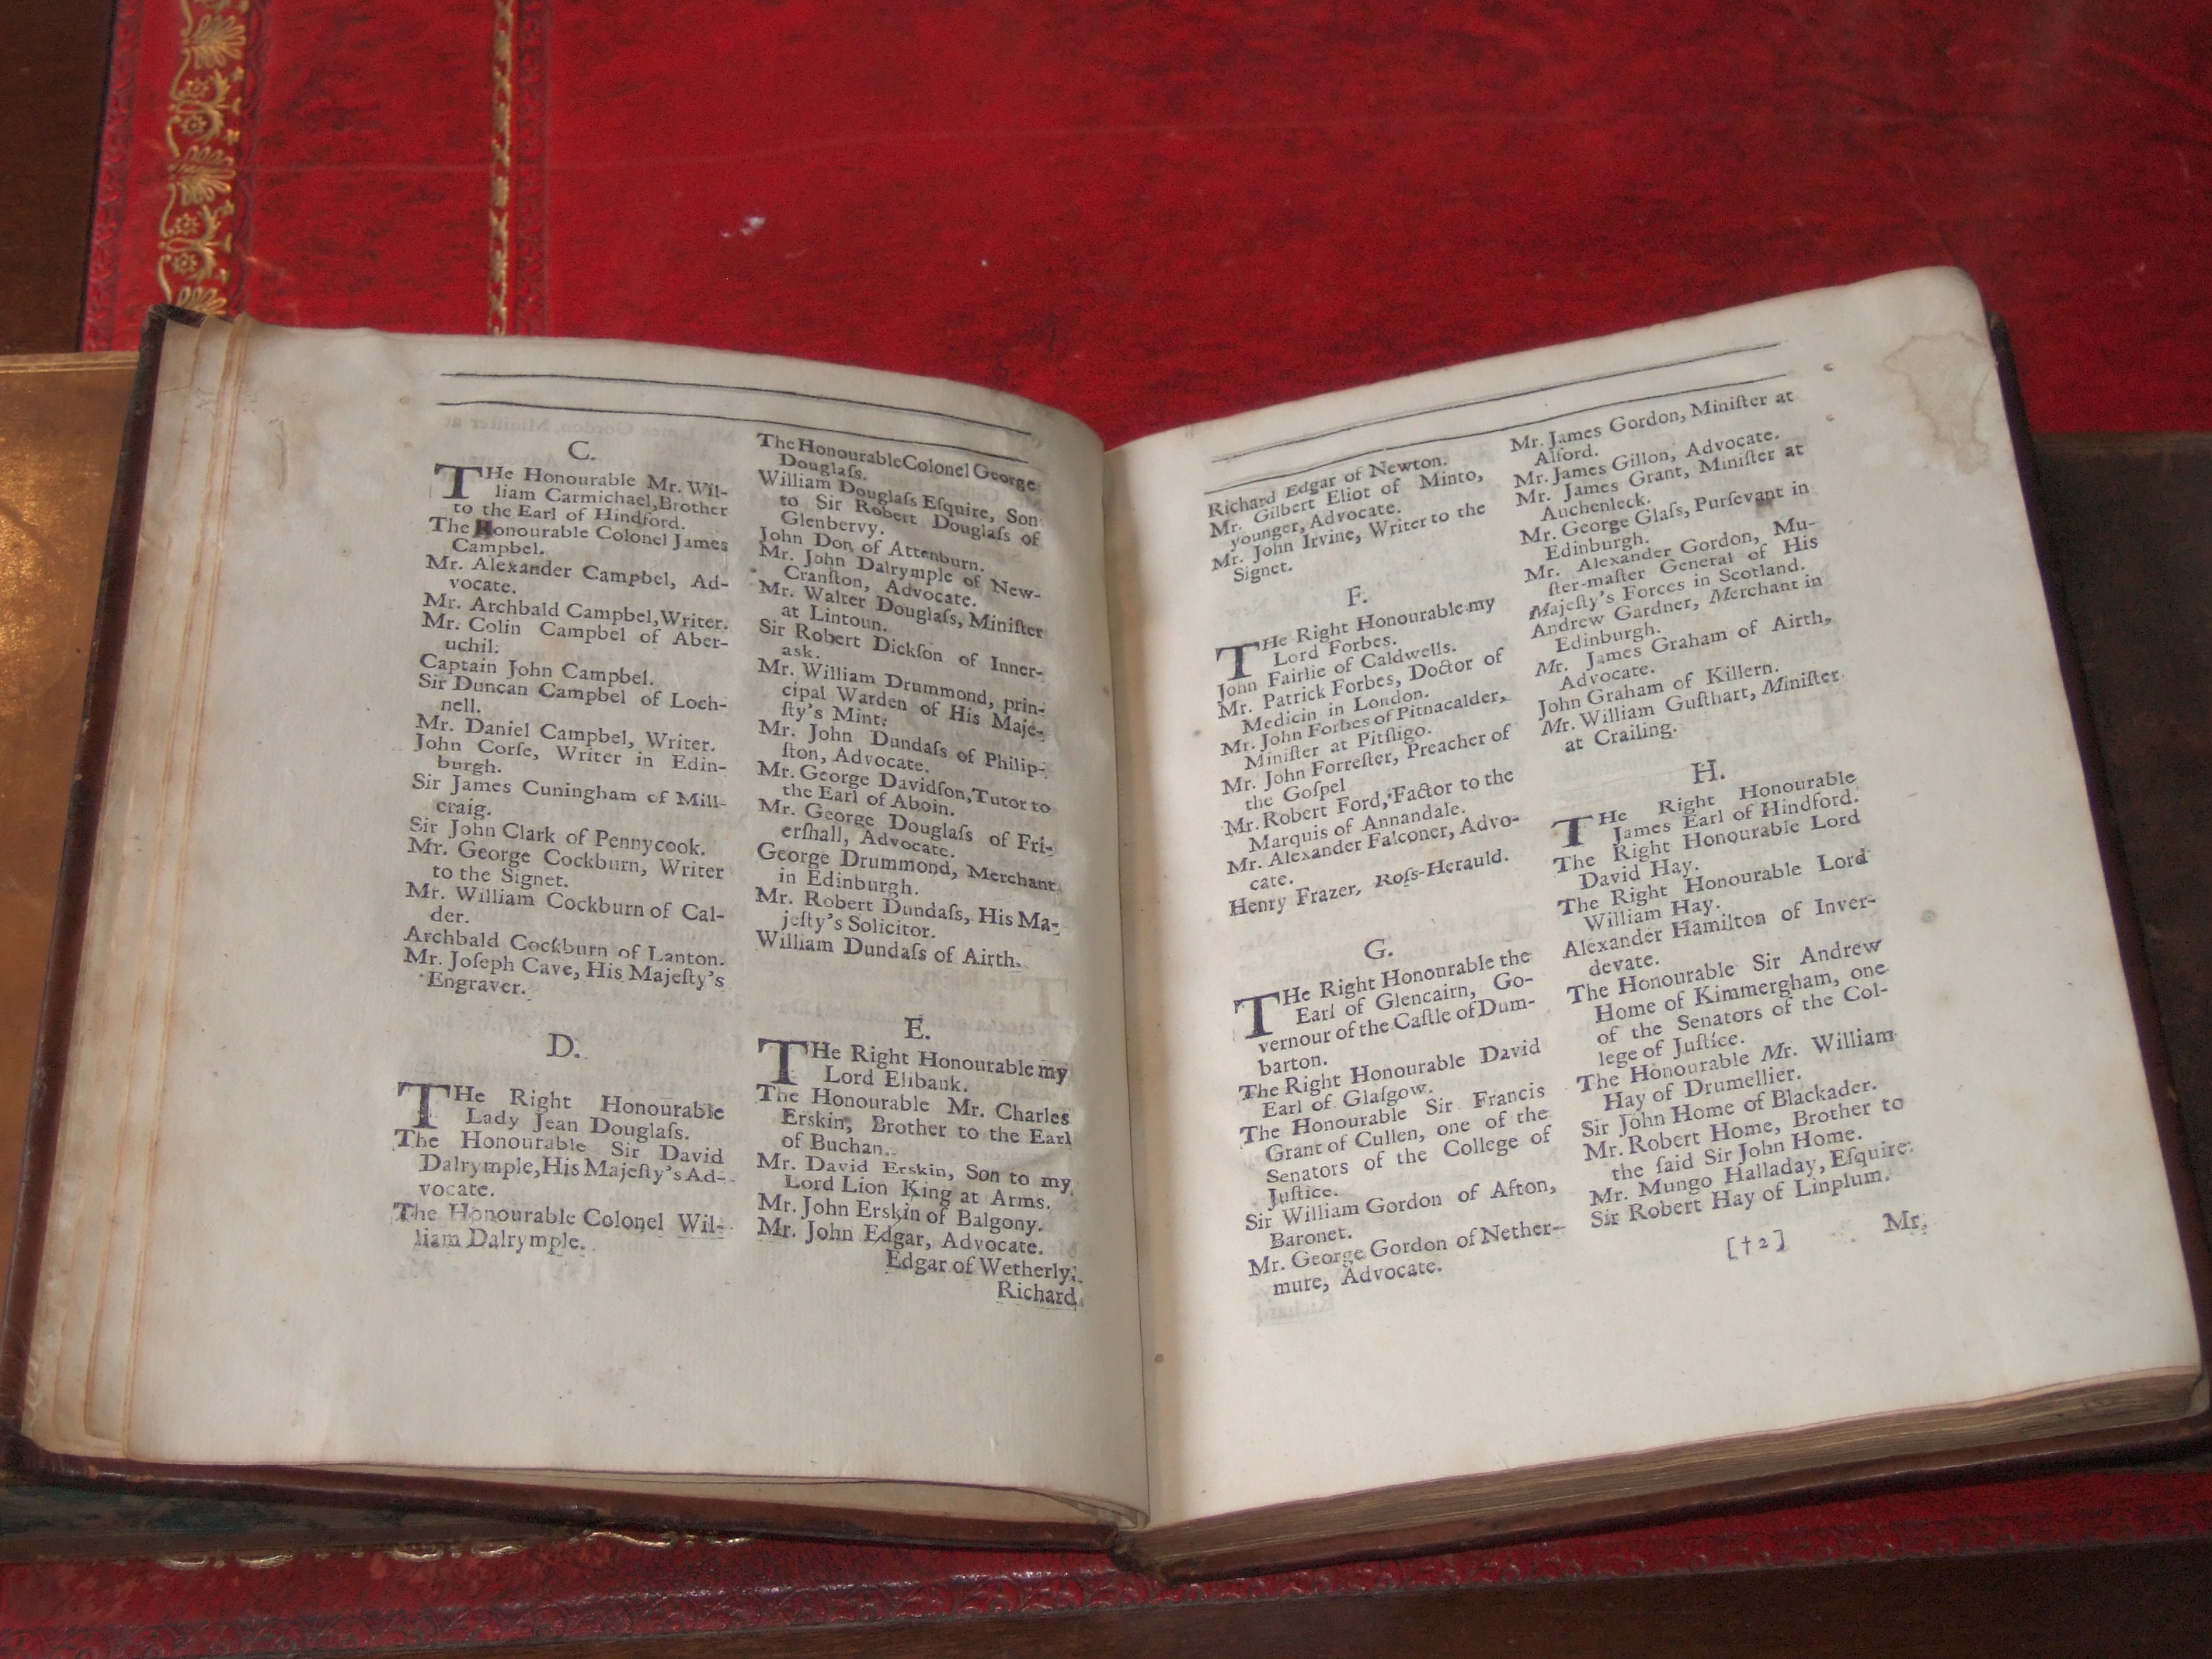 C.
THe Honourable Mr. Wil-
liam Carmichael, Brother
to the Earl of Hindford.
The Honourable Colonel James
Campbel.
Mr. Alexander Campbel, Ad-
vocate.
Mr. Archbald Campbel, Writer.
Mr. Colin Campbel of Aber-
uchil.
Captain John Campbel.
Sir Duncan Campbel of Loch-
nell.
Mr. Daniel Campbel, Writer.
John Corſe, Writer in Edin-
burgh.
Sir James Cuningham of Mill-
craig.
Sir John Clark of Pennycook.
Mr. George Cockburn, Writer
to the Signet.
Mr. William Cockburn of Cal-
der.
Archbald Cockburn of Lanton.
Mr. Joſeph Cave, His Majeſty's
Engraver.
D.
THe Right Honourable
Lady Jean Douglaſs.
The Honourable Sir David
Dalrymple, His Majeſty's Ad-
vocate.
The Honourable Colonel Wil-
liam Dalrymple.
The Honourable Colonel George
Douglaſs.
William Douglaſs Eſquire, Son
to Sir Robert Douglaſs of
Glenbervy.
John Don of Attenburn.
Mr. John Dalrymple of New-
Cranſton, Advocate.
Mr. Walter Douglaſs, Miniſter
at Lintoun.
Sir Robert Dickſon of Inner-
ask.
Mr. William Drummond, prin-
cipal Warden of His Maje-
ſty's Mint.
Mr. John Dundaſs of Philip-
ſton, Advocate.
Mr. George Davidſon, Tutor to
the Earl of Aboin.
Mr. George Douglaſs of Fri-
erſhall, Advocate.
George Drummond, Merchant
in Edinburgh.
Mr. Robert Dundaſs, His Ma-
jeſty's Solicitor.
William Dundaſs of Airth.
E.
THe Right Honourable my
Lord Elibank.
The Honourable Mr. Charles
Erskin, Brother to the Earl
of Buchan.
Mr. David Erskin, Son to my
Lord Lion King at Arms.
Mr. John Erskin of Balgony.
Mr. John Edgar, Advocate.
Edgar of Wetherly.
Richard
Richard Edgar of Newton.
Mr. Gilbert Eliot of Minto,
younger, Advocate.
Mr. John Irvine, Writer to the
Signet.
F.
THe Right Honourable my
Lord Forbes.
John Fairlie of Caldwells.
Mr. Patrick Forbes, Doctor of
Medicin in London.
Mr. John Forbes of Pitnacalder,
Miniſter at Pitſligo.
Mr. John Forreſter, Preacher of
the Goſpel
Mr. Robert Ford, Factor to the
Marquis of Annandale.
Mr. Alexander Falconer, Advo-
cate.
Henry Frazer, Roſs-Herauld.
G.
THe Right Honourable the
Earl of Glencairn, Go-
vernour of the Caſtle of Dum-
barton.
The Right Honourable David
Earl of Glaſgow.
The Honourable Sir Francis
Grant of Cullen, one of the
Senators of the College of
Juſtice.
Sir William Gordon of Afton,
Baronet.
Mr. George Gordon of Nether-
mure, Advocate.
Mr. James Gordon, Miniſter at
Alford.
Mr. James Gillon, Advocate.
Mr. James Grant, Miniſter at
Auchenleck.
Mr. George Glaſs, Purſevant in
Edinburgh.
Mr. Alexander Gordon, Mu-
ſter-maſter General of His
Majeſty's Forces in Scotland.
Andrew Gardner, Merchant in
Edinburgh.
Mr. James Graham of Airth,
Advocate.
John Graham of Killern.
Mr. William Guſthart, Miniſter
at Crailing.
H.
THe Right Honourable
James Earl of Hindford.
The Right Honourable Lord
David Hay.
The Right Honourable Lord
William Hay.
Alexander Hamilton of Inver-
devate.
The Honourable Sir Andrew
Home of Kimmergham, one
of the Senators of the Col-
lege of Juſtice.
The Honourable Mr. William
Hay of Drumellier.
Sir John Home of Blackader.
Mr. Robert Home, Brother to
the ſaid Sir John Home.
Mr. Mungo Halladay, Eſquire.
Sir Robert Hay of Linplum.
[†2] Mr.